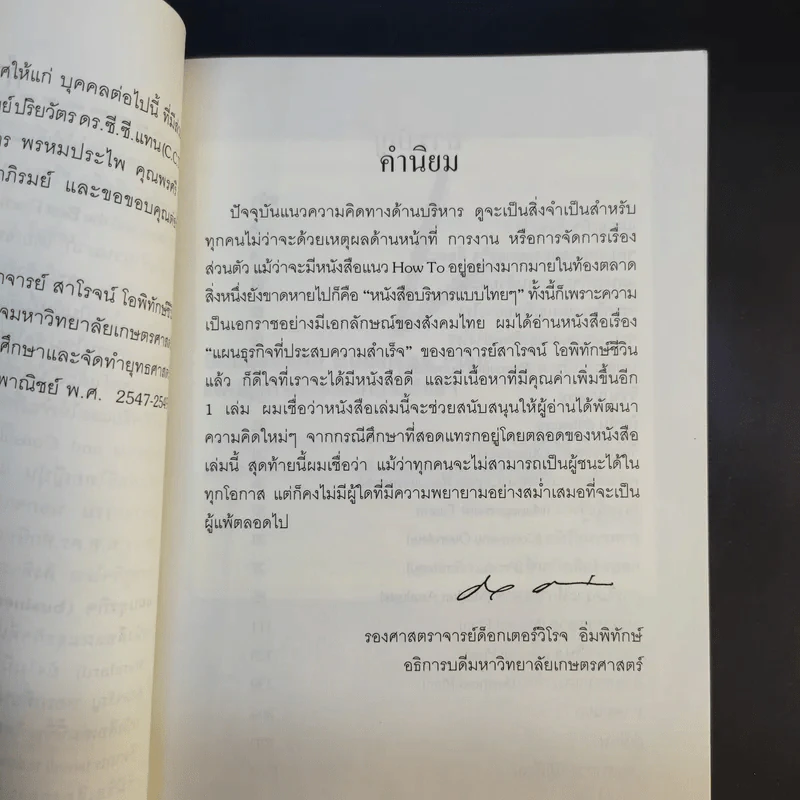 ศให้แก่ บุคคลต่อไปนี้ ที่มี
ย์ปริยวัตร ดร.ซี.ซี.แทน (C.C.
พรหมประไพ คุณพรศรี
าภิรมย์ และขอขอบคุณ
าจารย์ สาโรจน์ โอพิทักษ์ชีวิ
จมหาวิทยาลัยเกษตรศาส
ศึกษาและจัดทำยุทธศาส
พาณิชย์ พ.ศ. 2547-254
คำนิยม
ปัจจุบันแนวความคิดทางด้านบริหาร ดูจะเป็นสิ่งจำเป็นสำหรับ
ทุกคนไม่ว่าจะด้วยเหตุผลด้านหน้าที่ การงาน หรือการจัดการเรื่อง
ส่วนตัว แม้ว่าจะมีหนังสือแนว How To อยู่อย่างมากมายในท้องตลาด
สิ่งหนึ่งยังขาดหายไปก็คือ “หนังสือบริหารแบบไทยๆ” ทั้งนี้ก็เพราะความ
เป็นเอกราชอย่างมีเอกลักษณ์ของสังคมไทย ผมได้อ่านหนังสือเรื่อง
“แผนธุรกิจที่ประสบความสำเร็จ” ของอาจารย์สาโรจน์ โอพิทักษ์ชีวิน
แล้ว ก็ดีใจที่เราจะได้มีหนังสือดี และมีเนื้อหาที่มีคุณค่าเพิ่มขึ้นอีก
1 เล่ม ผมเชื่อว่าหนังสือเล่มนี้จะช่วยสนับสนุนให้ผู้อ่านได้พัฒนา
ความคิดใหม่ๆ จากกรณีศึกษาที่สอดแทรกอยู่โดยตลอดของหนังสือ
เล่มนี้ สุดท้ายนี้ผมเชื่อว่า แม้ว่าทุกคนจะไม่สามารถเป็นผู้ชนะได้ใน
ทุกโอกาส แต่ก็คงไม่มีผู้ใดที่มีความพยายามอย่างสม่ำเสมอที่จะเป็น
ผู้แพ้ตลอดไป
รองศาสตราจารย์ด็อกเตอร์วิโรจ อิ่มพิทักษ์
อธิการบดีมหาวิทยาลัยเกษตรศาสตร์